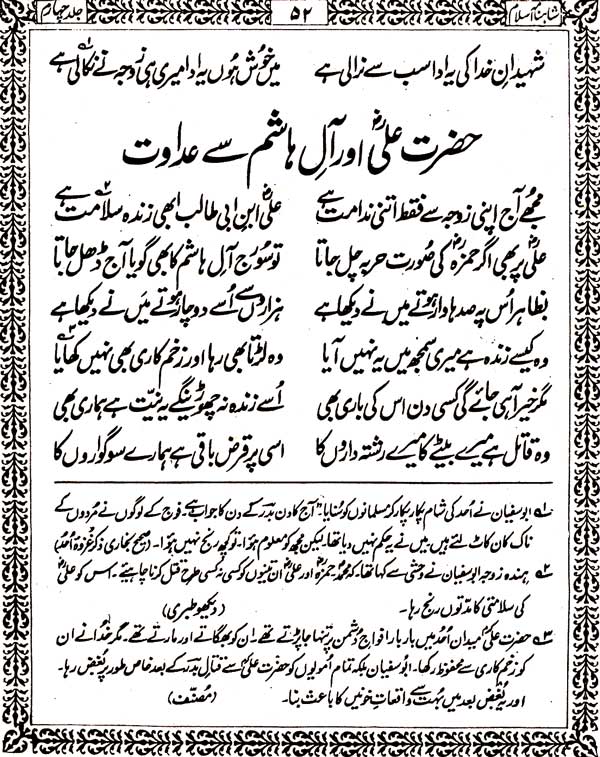 شاہنامہ اسلام ۵۲ جلد چہارم
شہیدانِ خدا کی یہ ادا سب سے نرالی ہے میں خوش ہوں یہ ادا میری ہی زوجہ نے نکالی ہے ۱
حضرت علیؓ اور آلِ ہاشم سے عداوت
مجھے آج اپنی زوجہ سے فقط اتنی ندامت ہے علیؓ ابن ابی طالب ابھی زندہ سلامت ہے ۲
علیؓ پر بھی اگر حمزہؓ کی صُورت حربہ چل جاتا تو سُورج آلِ ہاشم کا بھی گویا آج ڈھل جاتا
بظاہر اُس پہ صدہا وار ہوتے میں نے دیکھا ہے ہزاروں سے اُسے دو چار ہوتے میں نے دیکھا ہے
وہ کیسے زندہ ہے میری سمجھ میں یہ نہیں آیا وہ لڑتا بھی رہا اور زخم کاری بھی نہیں کھایا ۳
مگر خیر آہی جائے گی کسی دن اس کی باری بھی اُسے زندہ نہ چھوڑینگے یہ نیّت ہے ہماری بھی
وہ قاتل ہے میرے بیٹے کا میرے رشتہ داروں کا اسی پر قرض باقی ہے ہمارے سوگواروں کا
۱ ابوسفیان نے اُحد کی شام پکار پکار کر مسلمانوں کو سُنایا "آج کا دن بدر کے دن کا جواب ہے۔ فوج کے لوگوں نے مُردوں کے
ناک کان کاٹ لئے ہیں۔ میں نے یہ حکم نہیں دیا تھا۔ لیکن مجھ کو معلوم ہوا۔ تو کچھ رنج نہیں ہوا۔ (صحیح بخاری ذکر غزوۂ اُحد)
۲ ہندہ زوجہ ابوسفیان نے وحشی سے کہا تھا۔ کہ محمدؐ۔ حمزہؓ اور علیؓ ان تینوں کو کسی نہ کسی طرح قتل کرنا چاہیئے۔ اس کو علیؓ
کی سلامتی کا مدتوں رنج رہا۔ (دیکھو طبری)
۳ حضرت علیؓ میدان اُحد میں بار بار افواج دشمن پر تنہا جا پڑتے تھے۔ ان کو بھگاتے اور مارتے تھے۔ مگر خدا نے ان
کو زخم کاری سے محفوظ رکھا۔ ابوسفیان بلکہ تمام اُمویوں کو حضرت علیؓ سے قتال بدر کے بعد خاص طور پر بُغض رہا۔
اور یہ بُغض بعد میں بہت سے واقعات خونیں کا باعث بنا۔ (مُصنّف)